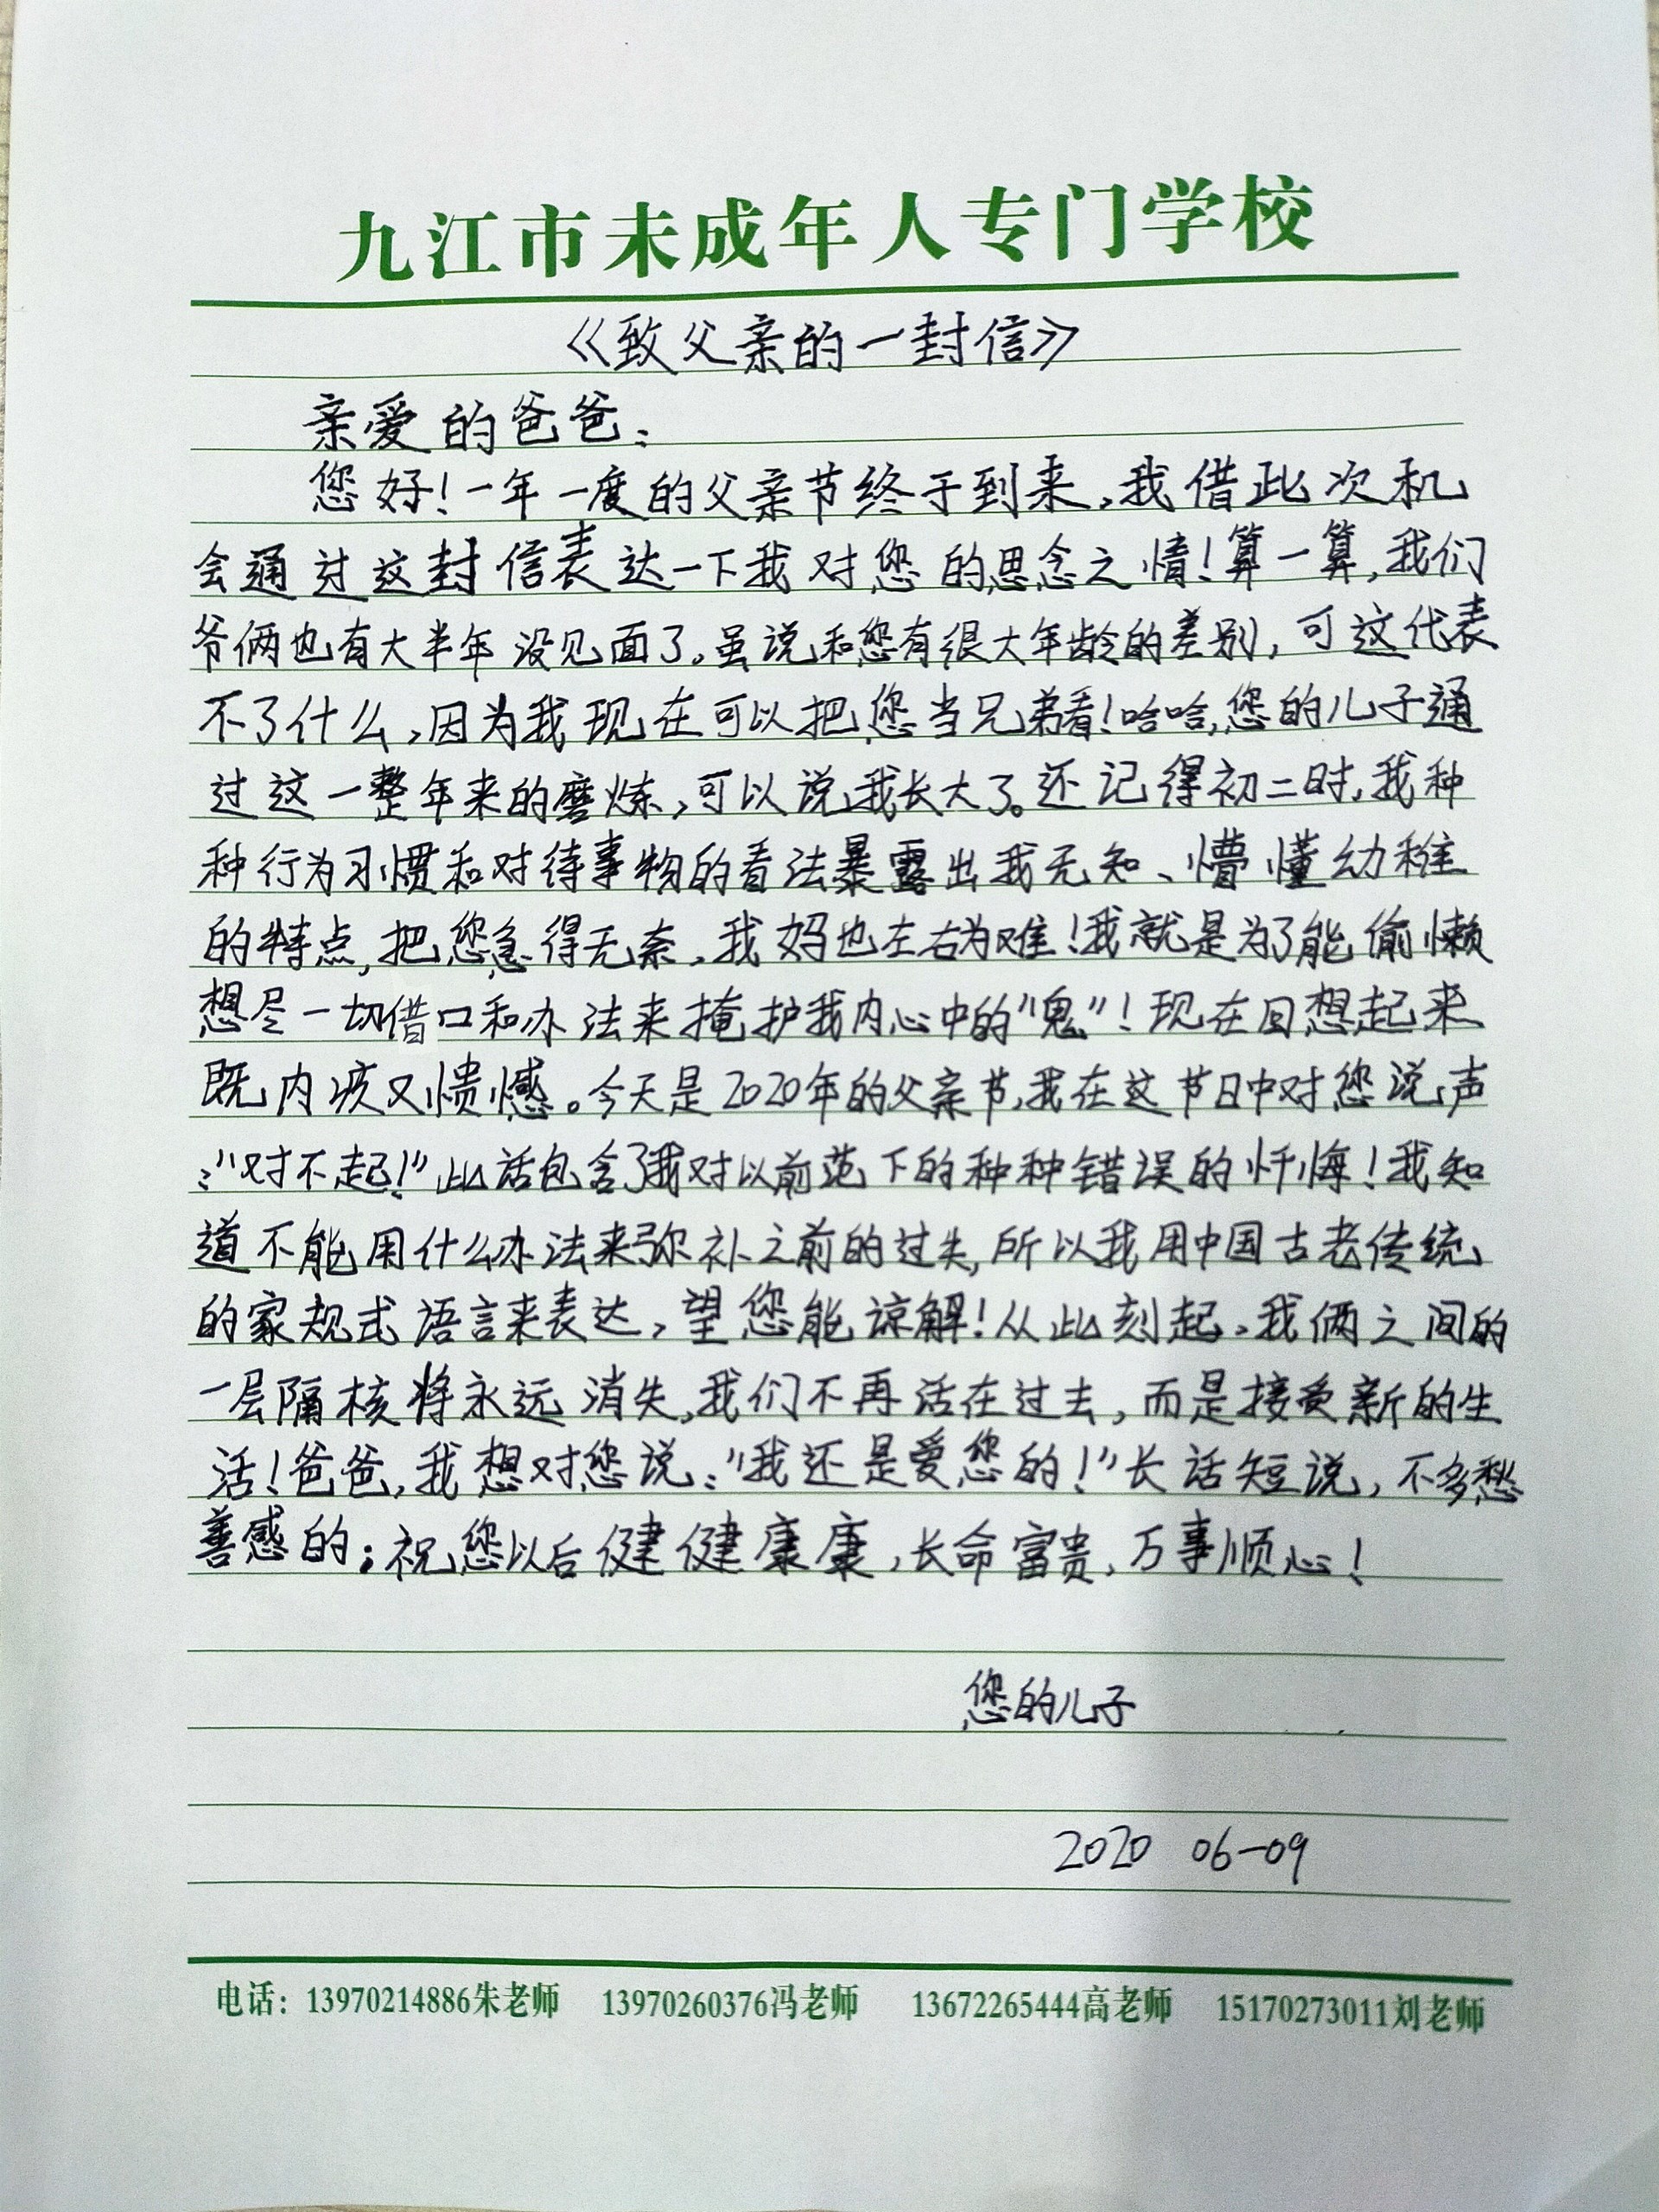 九江市未成年人专门学校
《致父亲的一封信》
亲爱的爸爸：
您好！一年一度的父亲节终于到来，我借此次机
会通过这封信表达一下我对您的思念之情！算一算，我们
爷俩也有大半年没见面了。虽说和您有很大年龄的差别，可这代表
不了什么，因为我现在可以把您当兄弟看！哈哈，您的儿子通
过这一整年来的磨炼，可以说我长大了。还记得初二时，我种
种行为习惯和对待事物的看法暴露出我无知、懵懂幼稚
的特点，把您急得无奈，我妈也左右为难！我就是为了能偷懒
想尽一切借口和办法来掩护我内心中的"鬼"！现在回想起来
既内疚又愦憾。今天是2020年的父亲节，我在这节日中对您说声
："对不起！"此话包含了我对以前范下的种种错误的忏悔！我知
道不能用什么办法来弥补之前的过失，所以我用中国古老传统
的家规式语言来表达，望您能谅解！从此刻起，我俩之间的
一层隔核将永远消失，我们不再活在过去，而是接受新的生
活！爸爸，我想对您说："我还是爱您的！"长话短说，不多愁
善感的；祝您以后健健康康，长命富贵，万事顺心！
您的儿子
2020 06-09
电话：13970214886朱老师 13970260376冯老师 13672265444高老师 15170273011刘老师